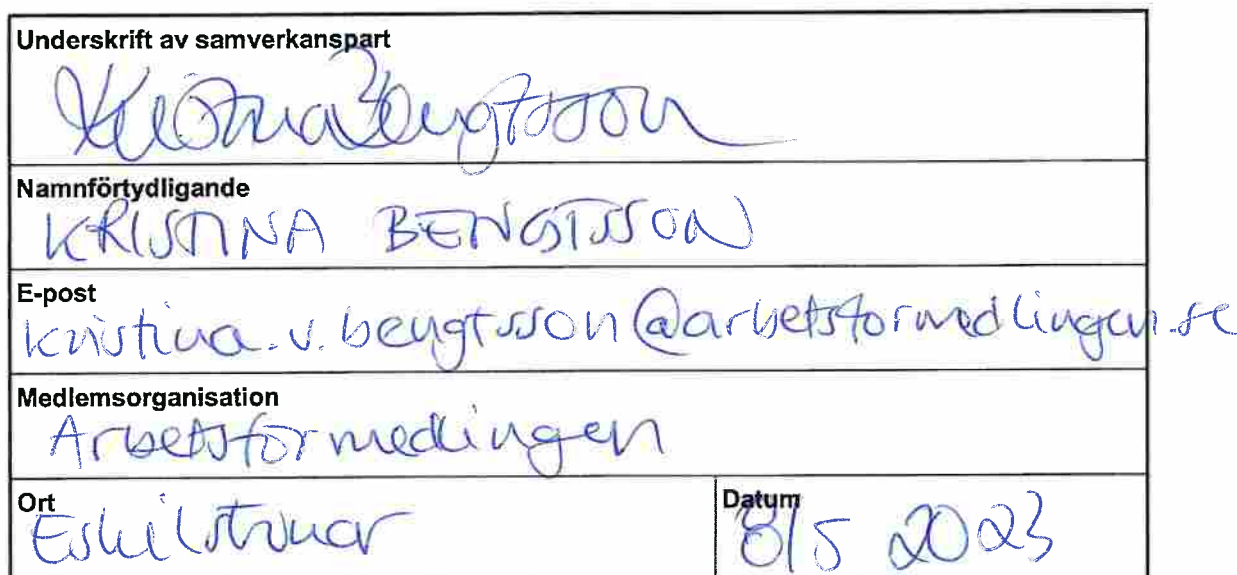 Underskrift av samverkanspart
Kristina Bengtsson
Namnförtydligande
KRISTINA BENGTSSON
E-post
kristina.v.bengtsson@arbetsformedlingen.se
Medlemsorganisation
Arbetsförmedlingen
Ort
Eskilstuna
Datum
8/5 2023